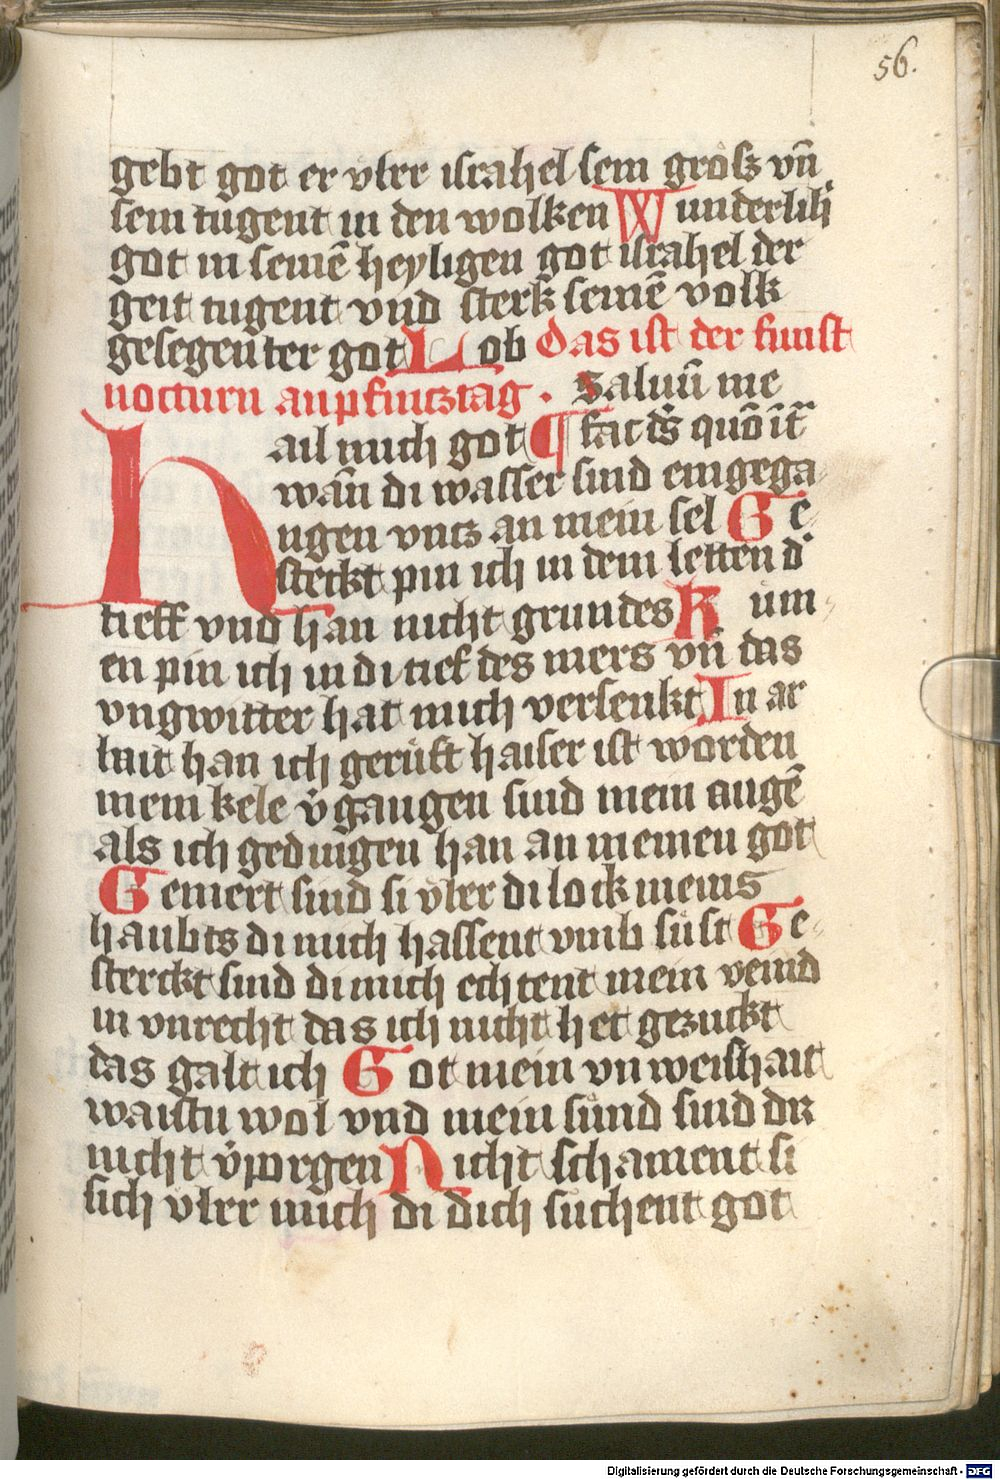 56.
gebt got er vber israhel sein grösz vn̄
sein tugent in den wolken Wunderlih
got in seinē heyligen got israhel der
geit tugent vnd sterk seinē volk
gesegenter got Lob Das ist der funft
nocturn an pfincztag. Saluū me
Hail mich got ¶ fac ds̄ quōīt̄
wan̄ di wasser sind eingega-
ngen vntz an mein sel Ge-
stekt pin ich in dem letten d'
tieff vnd han nicht grundes Kum-
en pin ich in di tief des mers vn̄ das
vngwitter hat mich versenkt In ar
bait han ich gerüft haiser ist worden
mein kele v̄gangen sind mein augē
als ich gedingen han an meinen got
Gemert sind si vber di lock meins
haubts di mich hassent vmb süst Ge-
sterckt sind di mich echtent mein veind
in vnrecht das ich nicht het gezuckt
das galt ich Got mein vnweishait
waistu wol vnd mein sünd sind dir
nicht v̄porgen Nicht schament si
sich vber mich di dich suchent got
Digitalisierung gefördert durch die Deutsche Forschungsgemeinschaft - DFG